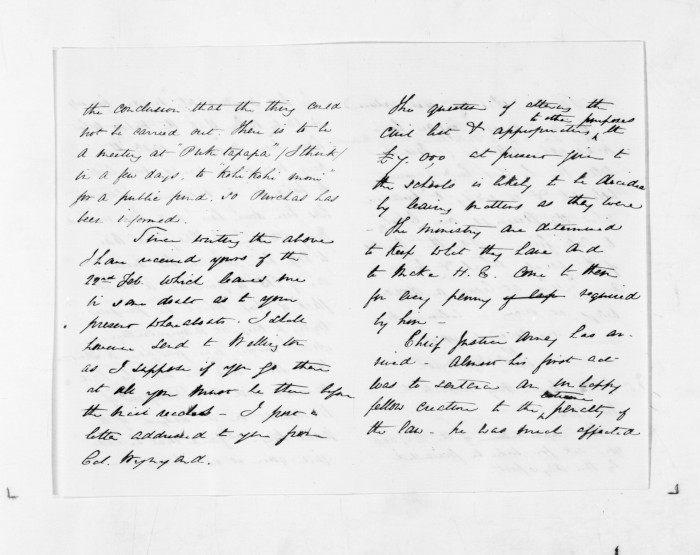 the conclusion that the thing could
not be carried out. There is to be
a meeting at "Puketapapa" (I think)
in a few days, to "Kohikohi moni"
for a public fund. so Purchas has
been informed.
Since writing the above
I have received yours of the
22nd Feb. which leaves me
in some doubt as to your
present whereabouts. I shall
however send to Wellington
as I suppose if you go there
at all you must be there before
the - I
letter addressed to you from
Col. Wynyard.
The question of altering the
civil list & appropriating to other purposes the
£7,000, at present given to
the schools is likely to be decided
by leaving matters as they were
- The ministry are determined
to keep what they have and
to make H. E. come to them
for every penny required
by him -
Chief Justice Arney has ar-
rived - Almost his first act
was to sentence an unhappy
fellow creature to the extreme penalty of
the law - he was much affected